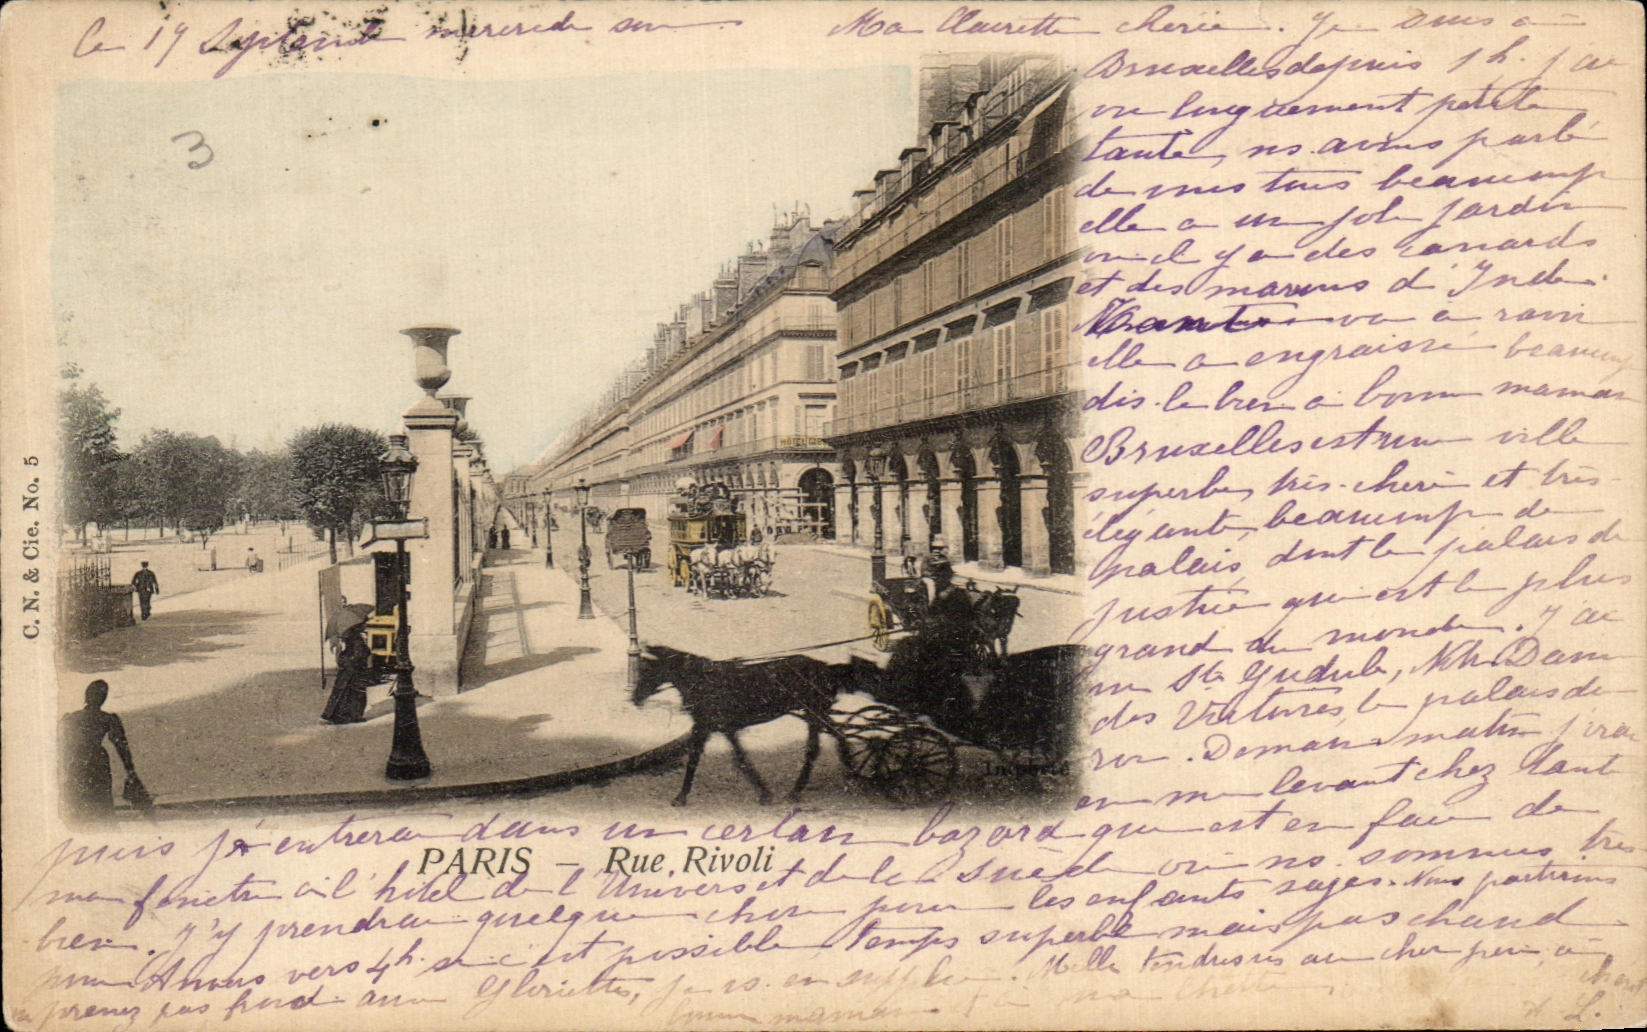 Ce 19 Septembre mercredi soir
Ma Clairette cherie. Je suis à
Bruxelles depuis 1 h. j'ai
vu longuement petite
tante, ns. avons parlé
de vous tous beaucoup
elle a un joli jardin
où il y a des canards
et des marins d'Inde.
va à ravir
elle a engraissé beaucoup
dis-le bien à bonne maman
Bruxelles est une ville
superbe, très chère et très
élégante, beaucoup de
palais, dont le palais de
justice qui est le plus
grand du monde. J'ai
vu Ste Gudule, Notre Dame
des Victoires, le palais du
roi. Demain matin j'irai
en me levant chez tante
puis j'entrerai dans un certain bazard qui est en face de
PARIS – Rue Rivoli
ma fenêtre à l'hôtel de l'Univers et de la Suède où ns. sommes très
bien. J'y prendrai quelque chose pour les enfants sages. Nous partirons
pour Anvers vers 4h. si c'est possible, temps superbe mais pas chaud
prenez pas froid aux Gloriettes, je vs. en supplie. Mille tendresses au cher père, à
bonne maman
L.
3
C. N. & Cie. No. 5
HOTEL